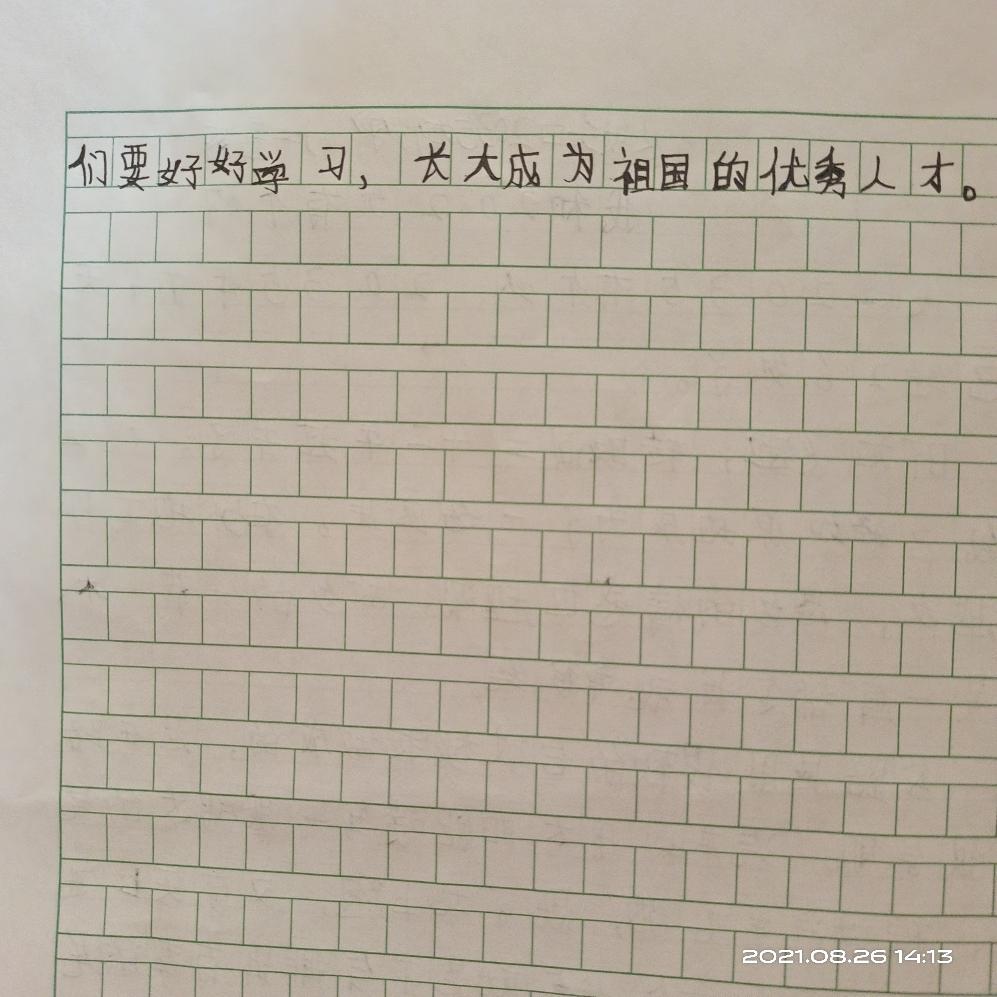 们要好好学习，长大成为祖国的优秀人才。
2021.08.26 14:13